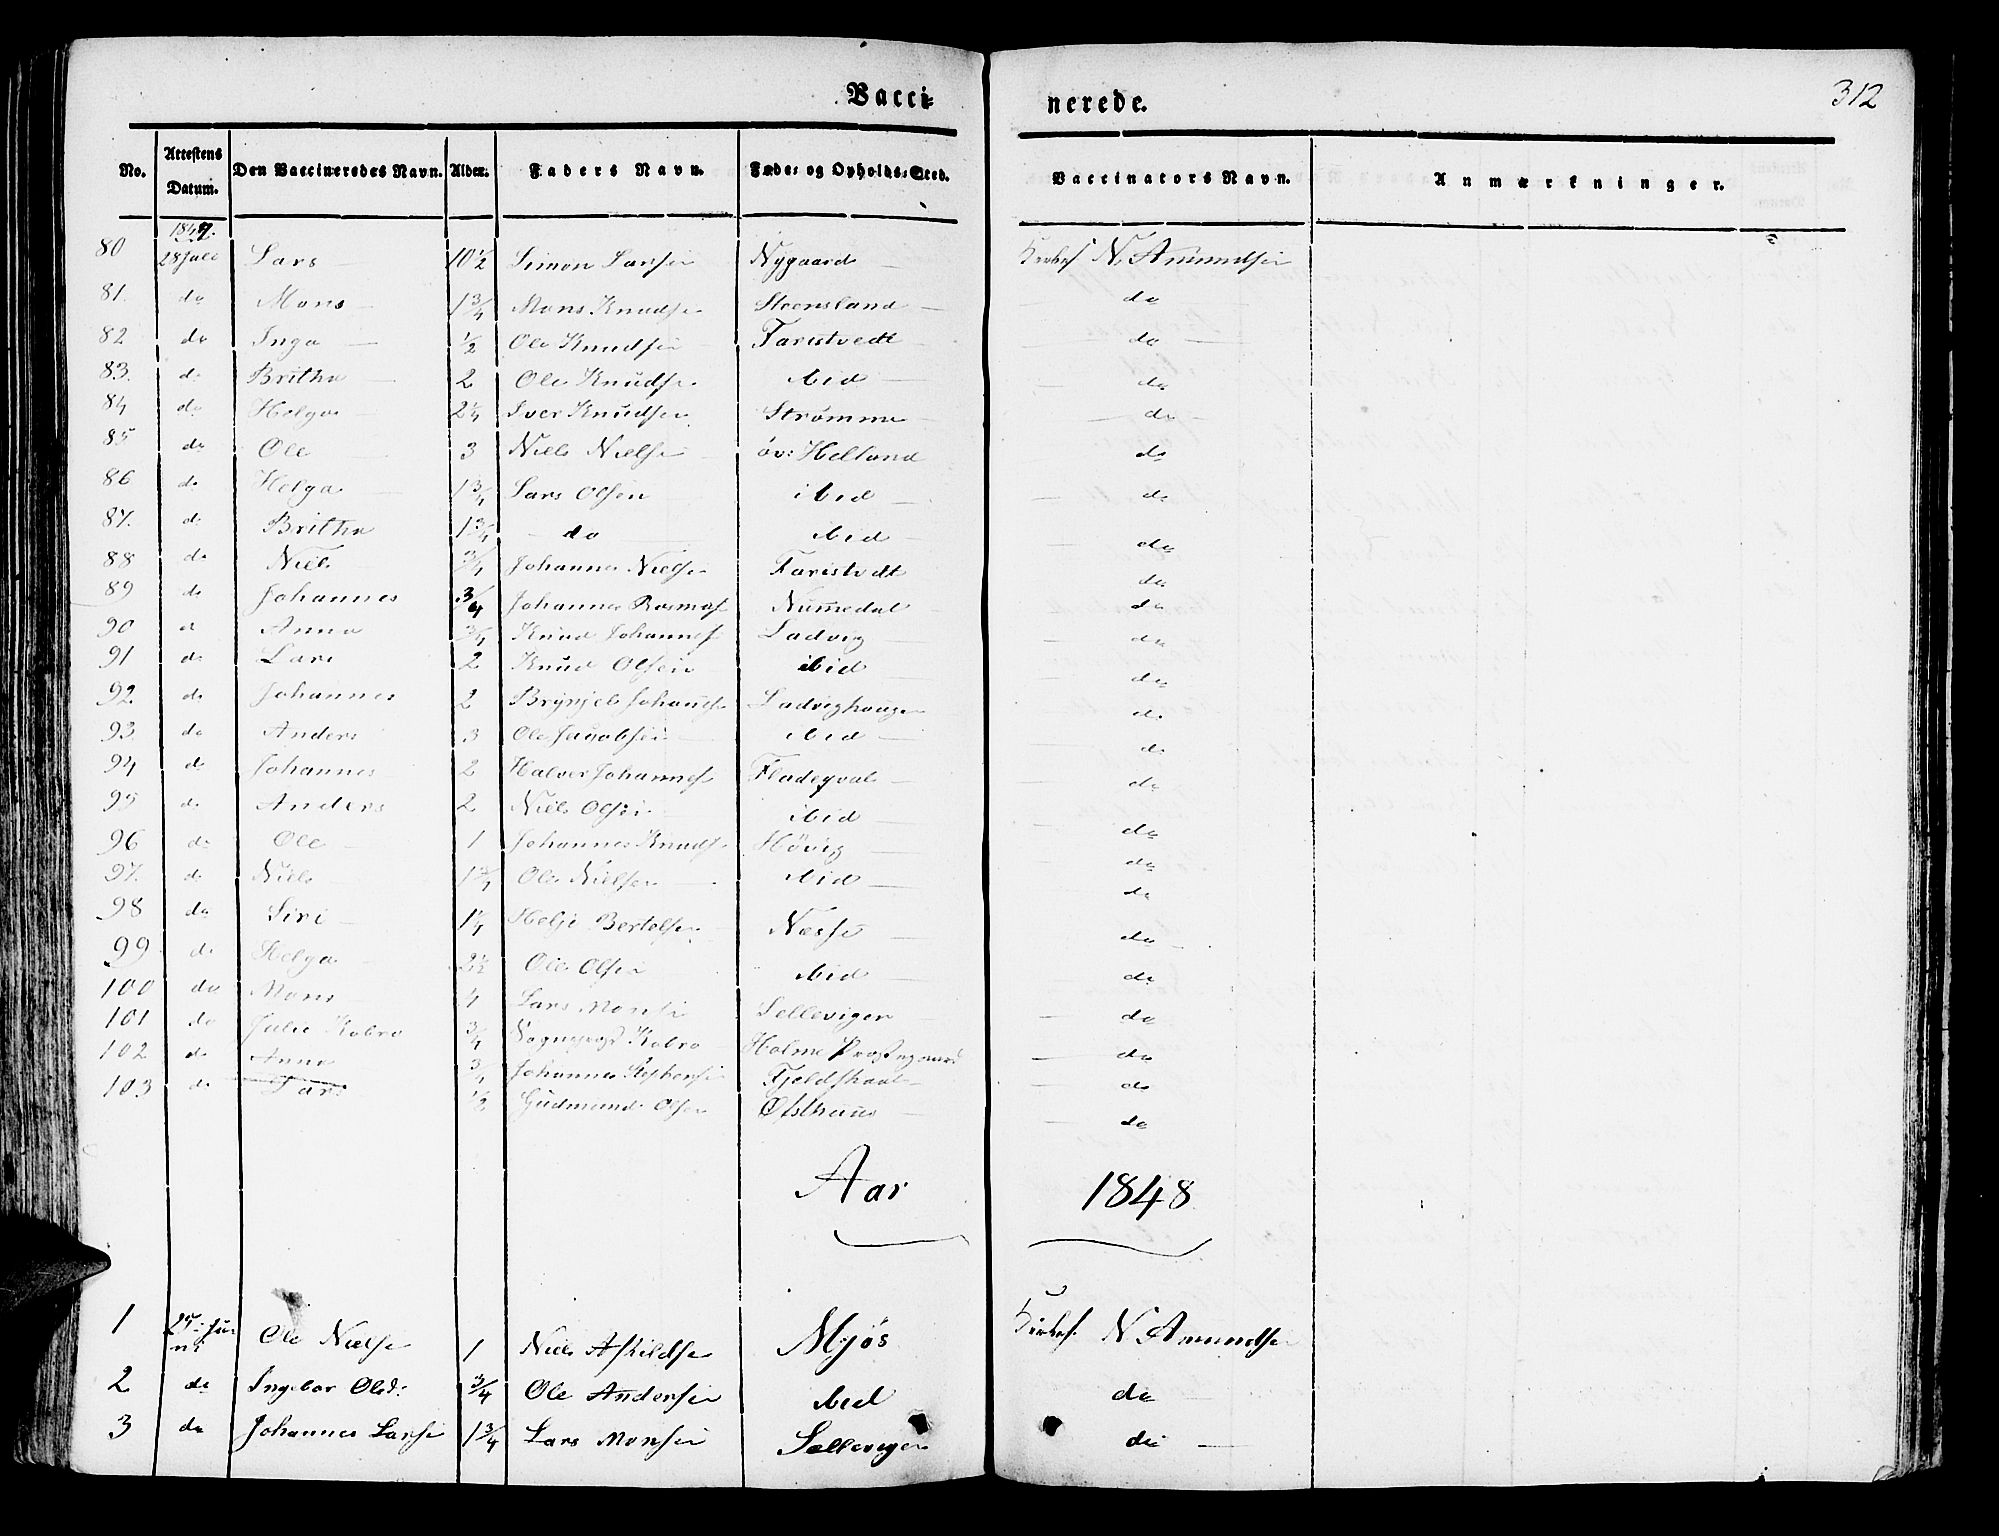 Vacci= nerede. 312
No. Attestens Datum. Den Vaccineredes Navn. Alder. Faders Navn. Føde- og Opholds-Sted. Vaccinators Navn. Anmærkninger.
1847.
80 28 Juli Lars 10 1/2 Simon Larsen Nygaard Kirkes. N. Amundsen
81. do Mons 1 3/4 Mons Knudsen Steensland do
82 do Inga 1/2 Ole Knudsen Faristvedt do
83. do Britha 2 Ole Knudsen ibid do
84 do Helga 2 1/4 Iver Knudsen Strømme do
85 do Ole 3 Niels Nielsen öv: Helland do
86 do Helga 1 3/4 Lars Olsen ibid do
87. do Britha 1 3/4 do ibid do
88 do Niels 3/4 Johannes Nielsen Faristvedt do
89 do Johannes 3/4 Johannes Rasmus Nummedal do
90 do Anna 3/4 Knud Johannes Ladvig do
91 do Lars 2 Knud Olsen ibid do
92. do Johannes 2 Brynjel Johannes Ladvighaugen do
93. do Anders 3 Ole Jacobsen ibid do
94 do Johannes 2 Halvor Johannes do
95 do Anders 2 Niels Olsen ibid do
96 do Ole 1 Johannes Knuds Hövig do
97. do Niels 1 3/4 Ole Nielsen ibid do
98 do Siri 1 1/4 Helje Bertelsen Nesse do
99 do Helga 2 1/2 Ole Olsen ibid do
100 do Mons Lars Monsen Sellevigen do
101 do Julie Kobro 3/4 Sognepræst Kobro Holme Præstegaard do
102 do Anna 3/4 Johannes Fjeldskaal do
103 do Lars 1/2 Gudmund Olsen Østhuus do
Aar 1848.
1 25 Juni Ole Nielsen 1 Niels Askildsen Mjøs Kirkes. N. Amundsen
2 do Ingebor Olsd: 3/4 Ole Andersen ibid do
3 do Johannes Larsen 1 3/4 Lars Monsen Sellevigen do